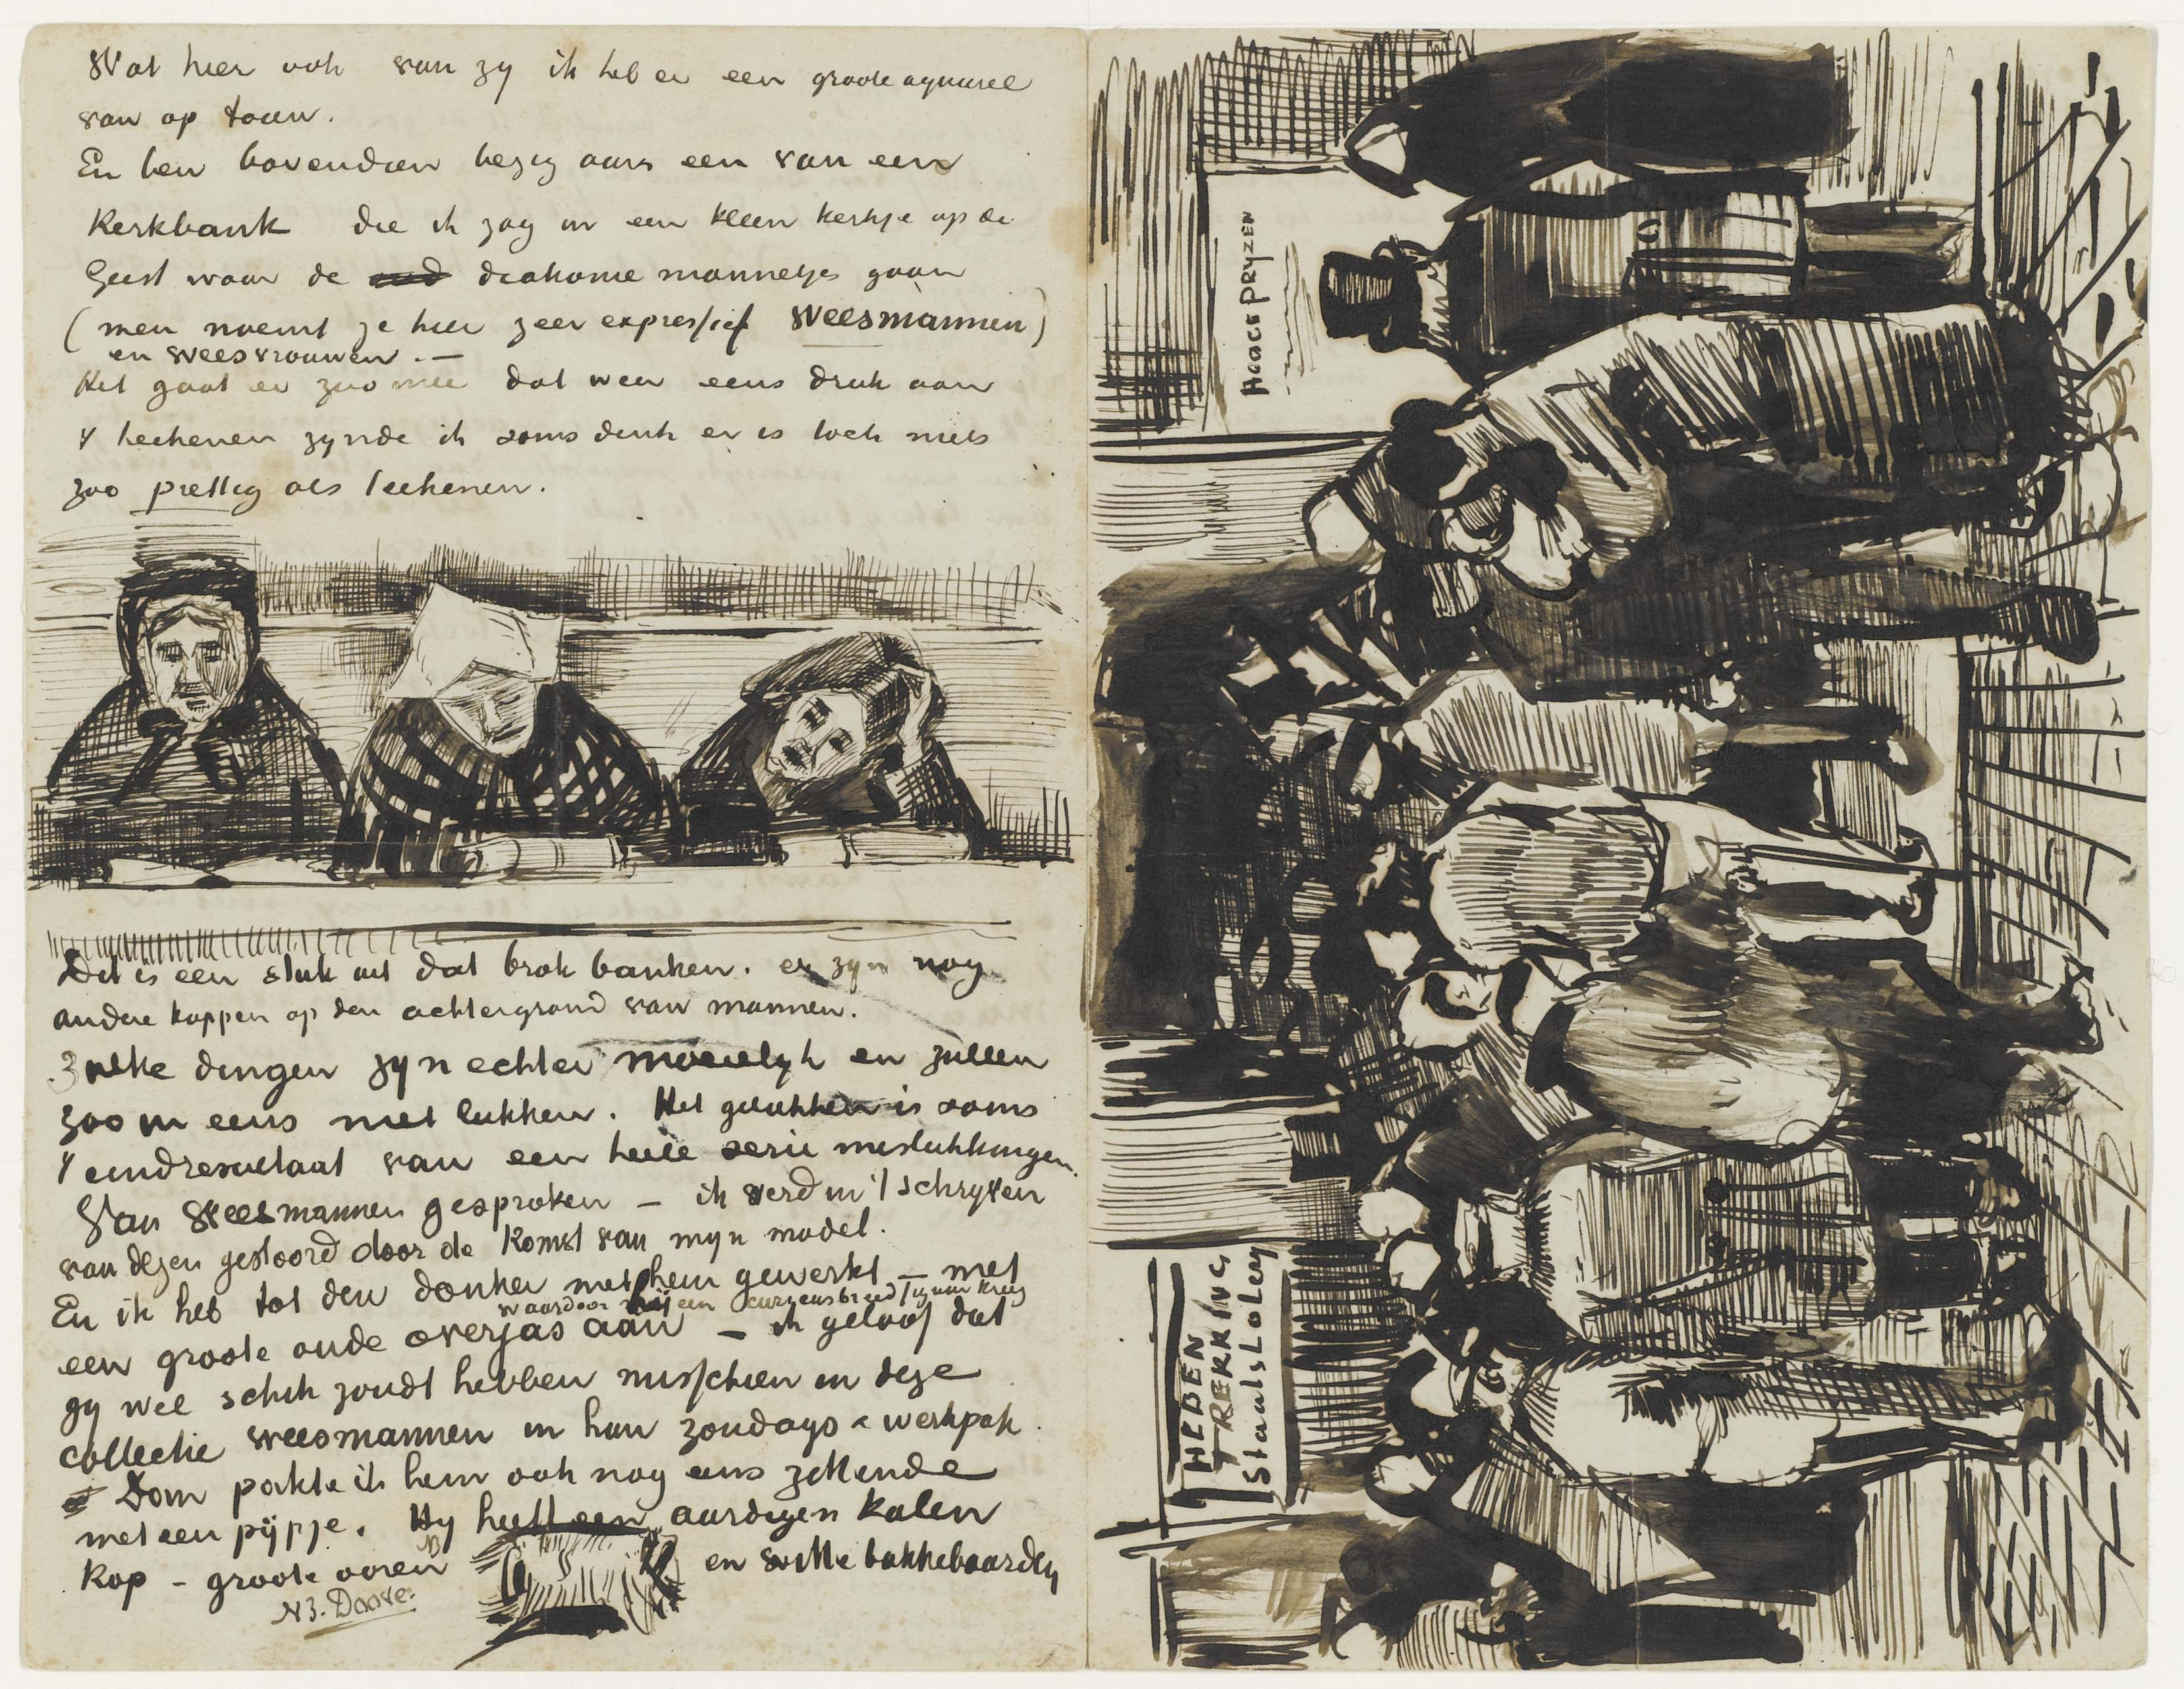 Wat hier ook van zy ik heb er een groote aquarel
van op touw.
En ben bovendien bezig aan een van een
Kerkbank die ik zag in een klein kerkje op de
Geest waar de diakonie mannetjes gaan
(men noemt ze hier zeer expressief Weesmannen)
en weesvrouwen. —
Het gaat er zoo mee dat weer eens druk aan
't teekenen zynde ik soms denk er is toch niets
zoo prettig als teekenen.
Dit is een stuk uit dat brok banken. er zyn nog
andere koppen op den achtergrond van mannen.
Zulke dingen zyn echter moeielyk en zullen
zoo in eens niet lukken. Het gelukken is soms
't eindresultaat van een heele serie mislukkingen.
Van Weesmannen gesproken — ik werd in 't schryven
van dezen gestoord door de Komst van myn model.
En ik heb tot den donker met hem gewerkt — met
waardoor hij een curieus breed figuur kreeg
een groote oude overjas aan — ik geloof dat
gy wel schik zoudt hebben misschien in deze
collectie weesmannen in hun zondags & werkpak.
Dan pakte ik hem ook nog eens zittende
met een pijpje. Hy heeft een aardigen kalen
Kop – groote ooren en witte bakkebaarden
NB. Doove.
HOOGE PRYZEN
HEDEN
TREKKING
Staats Lotery